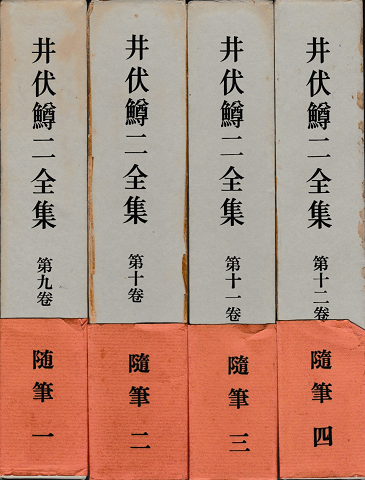 井伏鱒二全集
第九卷
随筆 一
井伏鱒二全集
第十卷
隨筆 二
井伏鱒二全集
第十一卷
隨筆 三
井伏鱒二全集
第十二卷
隨筆 四